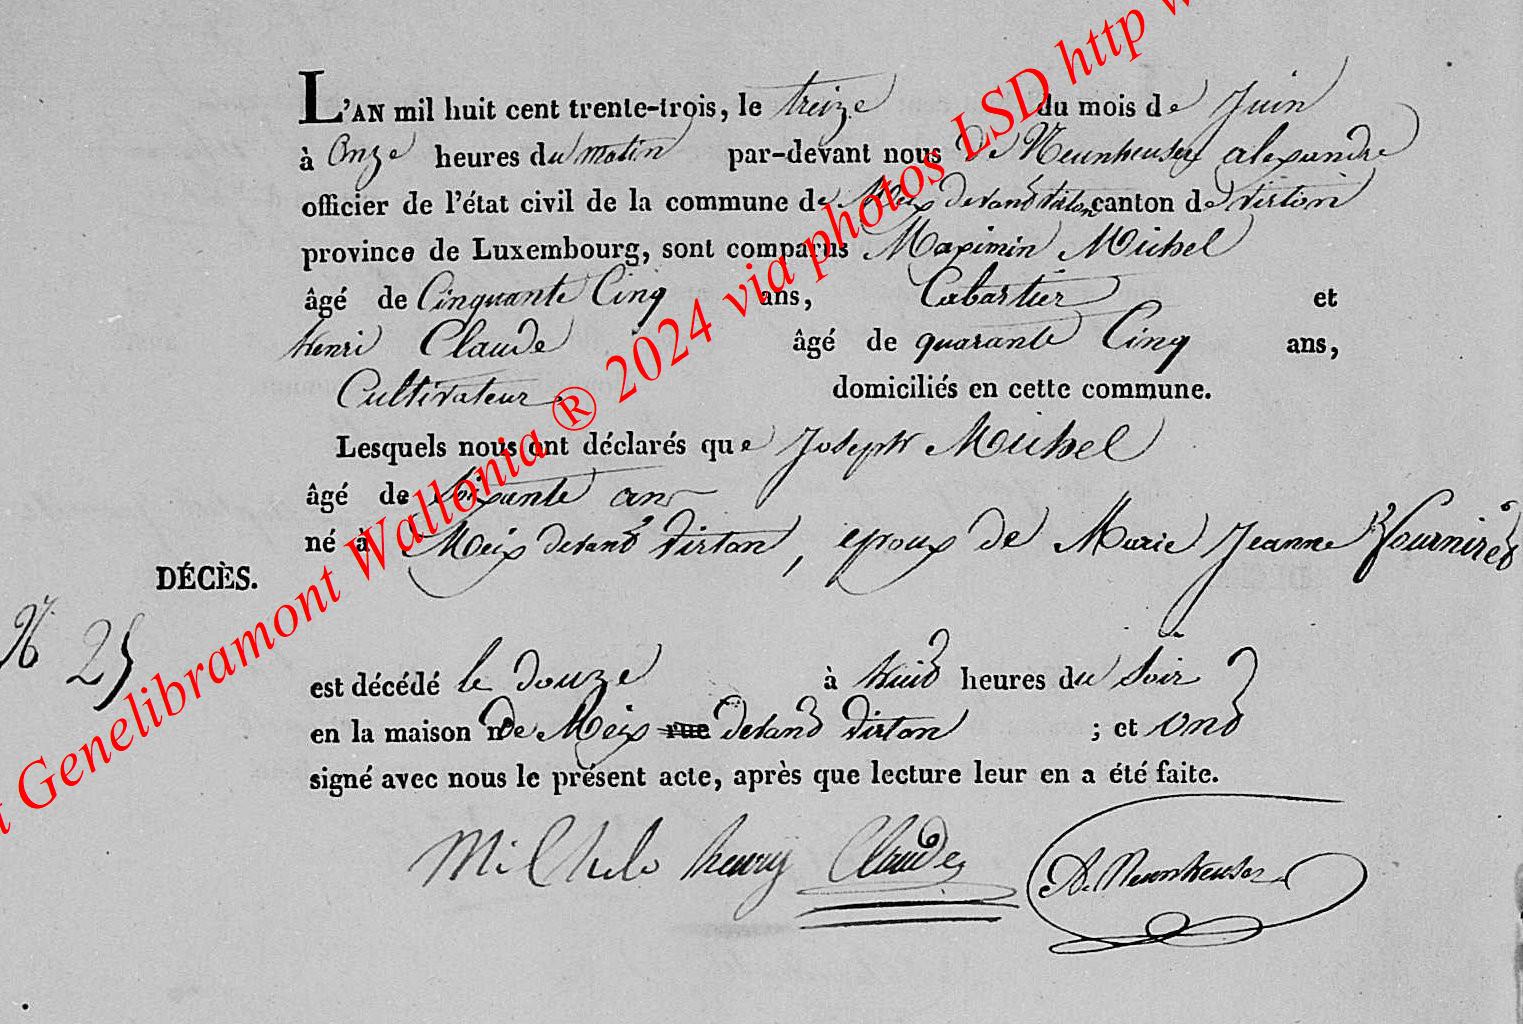 L'AN mil huit cent trente-trois, le treize du mois de Juin
à Onze heures du matin par-devant nous De Neunheuser alexandre
officier de l'état civil de la commune de Meix devant virton canton de virton
province de Luxembourg, sont comparus Maximin Michel
âgé de Cinquante Cinq ans, Cabartier et
henri Claude âgé de quarante Cinq ans,
Cultivateur domiciliés en cette commune.
Lesquels nous ont déclarés que Joseph Michel
âgé de Soixante ans
né à Meix devant virton, epoux de Marie Jeanne
DÉCÈS.
N° 25
est décédé le douze à huit heures du soir
en la maison n de Meix rue devant virton ; et ont
signé avec nous le présent acte, après que lecture leur en a été faite.
henry Claude A. Neunheuser
Genelibramont Wallonia ® 2024 via photos LSD http